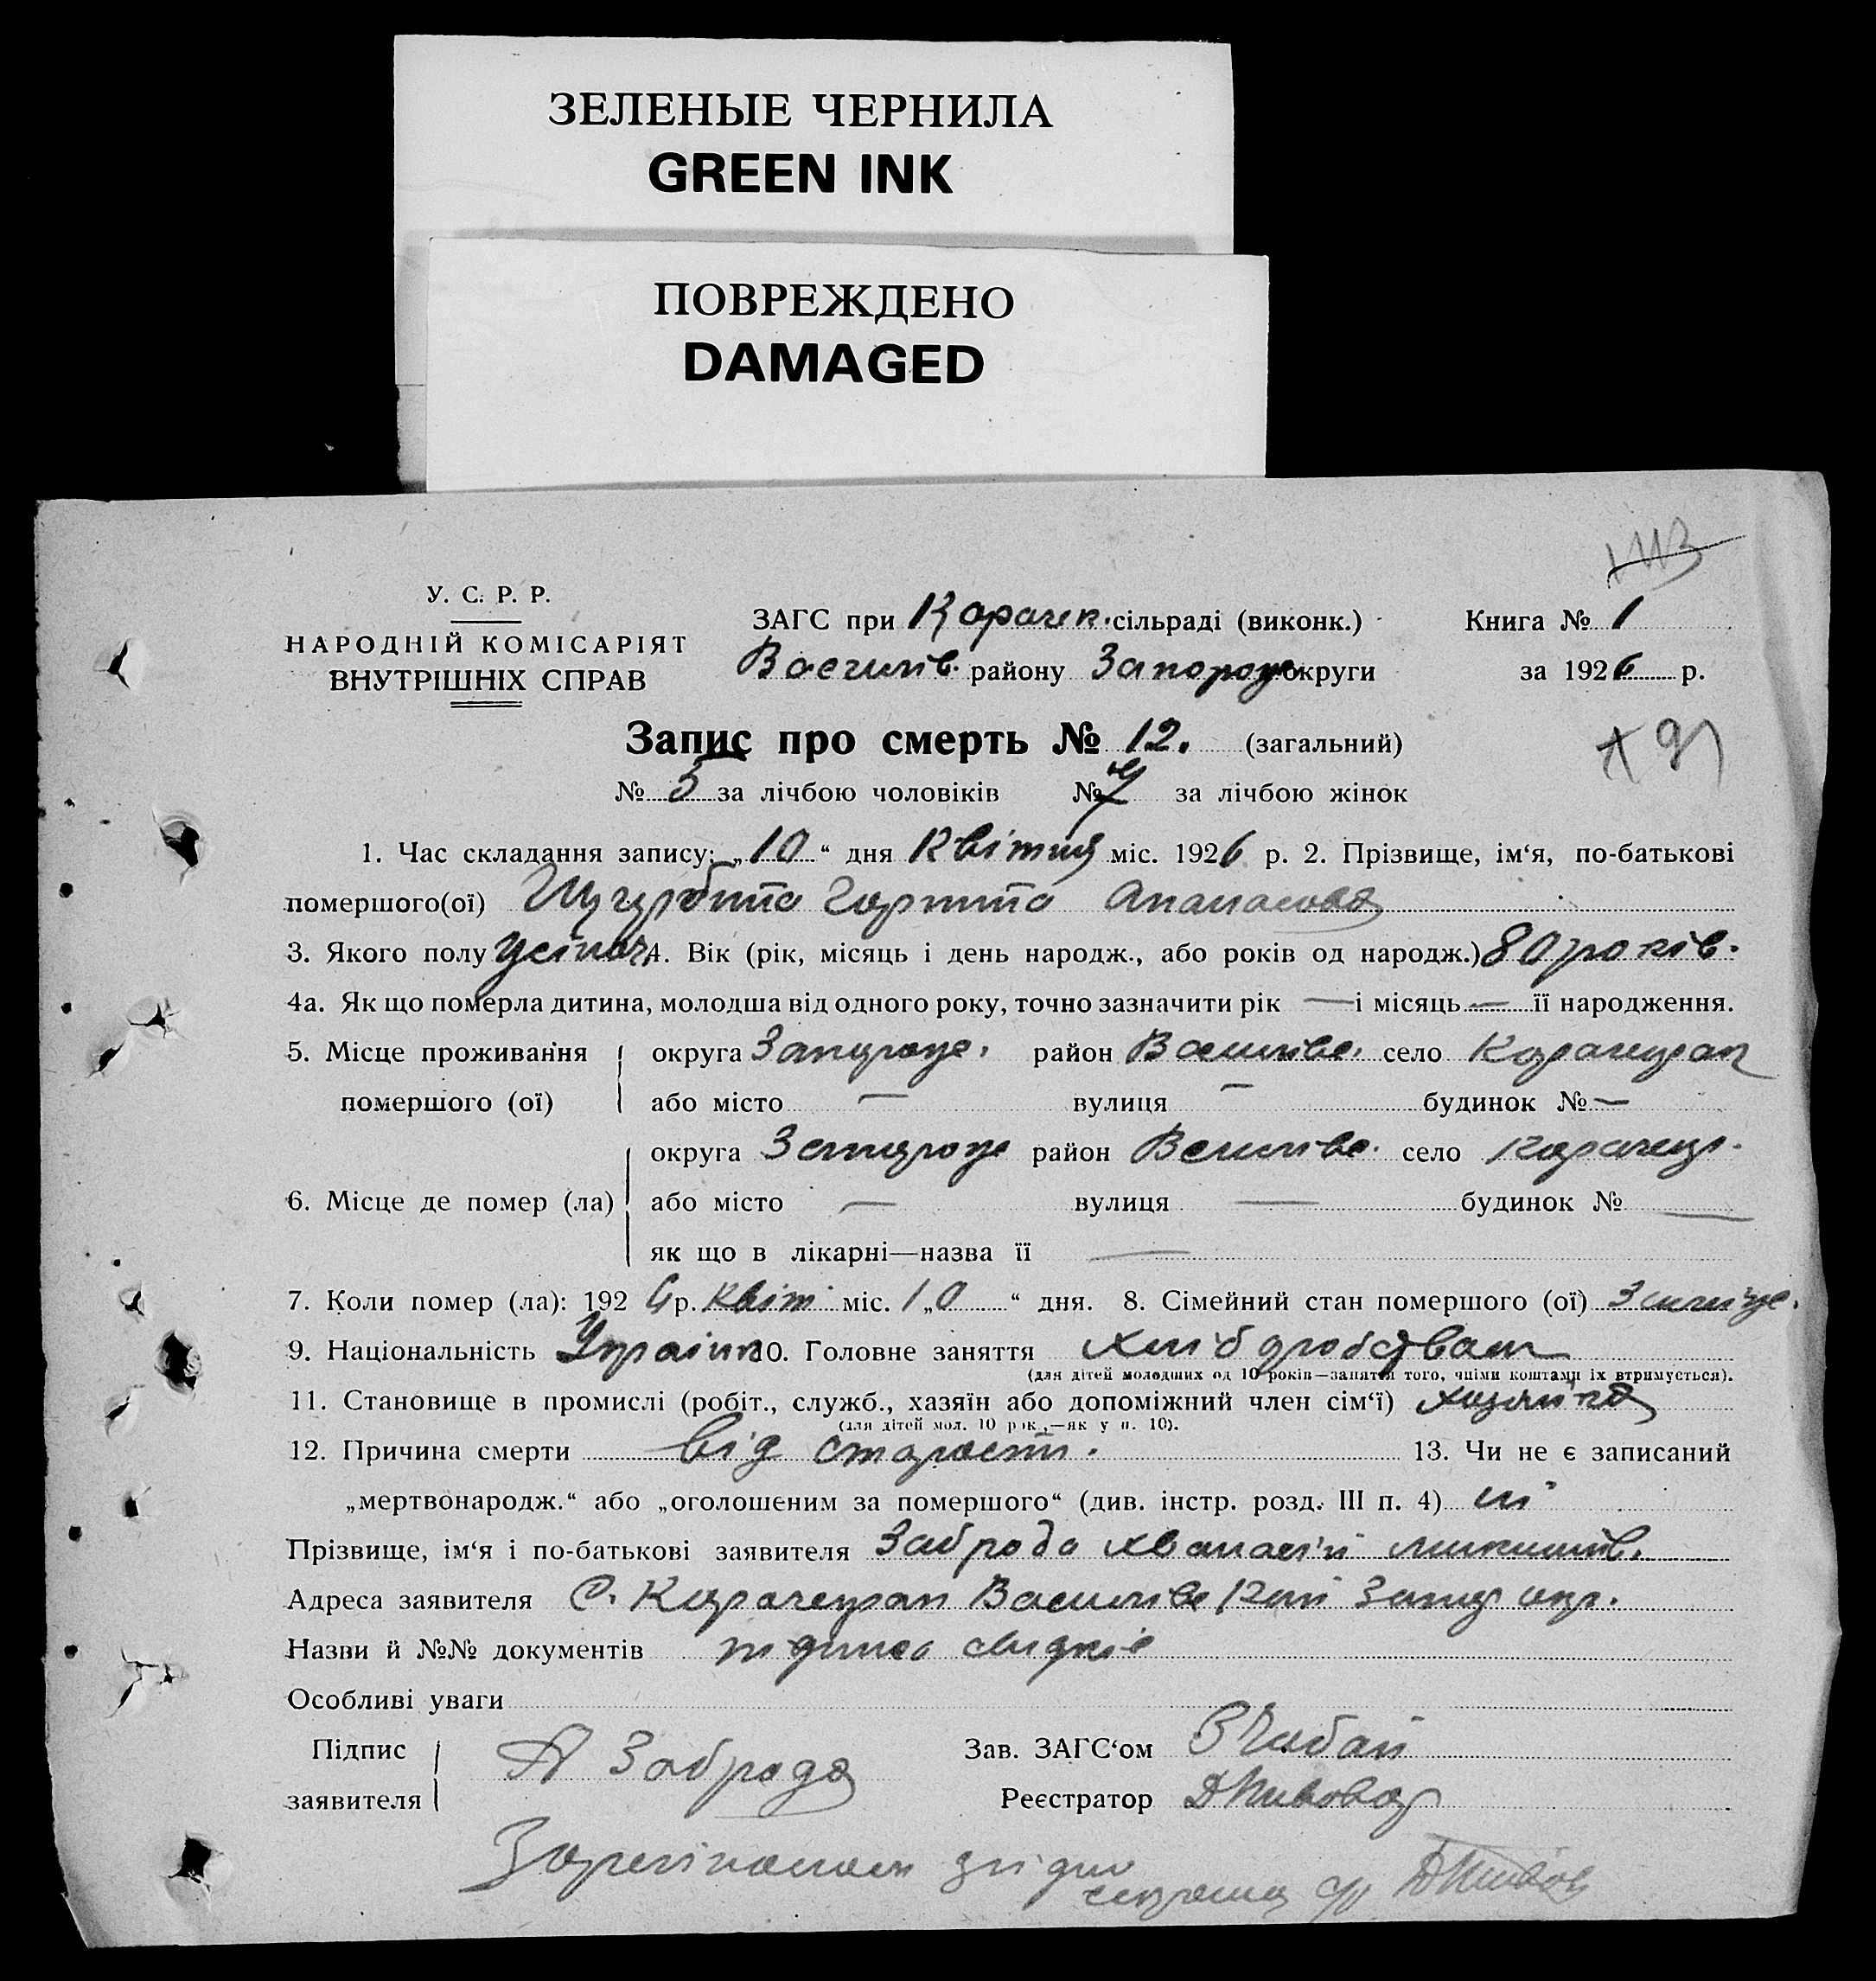 ЗЕЛЕНЫЕ ЧЕРНИЛА
GREEN INK
ПОВРЕЖДЕНО
DAMAGED
У. С. Р. Р.
НАРОДНІЙ КОМІСАРІЯТ
ВНУТРІШНІХ СПРАВ
ЗАГС при Карачек. сільраді (виконк.)
Василів. району Запорож округи
Книга № 1
за 1926 р.
Запис про смерть № 12. (загальний)
№ 5 за лічбою чоловіків № 7 за лічбою жінок
1. Час складання запису: „10“ дня Квітня міс. 1926 р. 2. Прізвище, ім‘я, по-батькові
помершого(ої)
3. Якого полу 4. Вік (рік, місяць і день народж., або років од народж.) 80 років.
4а. Як що померла дитина, молодша від одного року, точно зазначити рік — і місяць — її народження.
5. Місце проживання округа Запорож. район Василівс. село Карачекрак
помершого (ої) або місто — вулиця — будинок № —
округа Запорож район Василівс. село Карачекр.
6. Місце де помер (ла) або місто — вулиця — будинок № —
як що в лікарні—назва її —
7. Коли помер (ла): 1926 р. Квіт міс. „10“ дня. 8. Сімейний стан помершого (ої)
9. Національність Україн 10. Головне заняття
(для дітей молодших од 10 років—заняття того, чиїми коштами їх втримується).
11. Становище в промислі (робіт., служб., хазяїн або допоміжний член сім‘ї) хазяйка
(для дітей мол. 10 рок.,—як у п. 10).
12. Причина смерти від старости. 13. Чи не є записаний
„мертвонародж.“ або „оголошеним за помершого“ (див. інстр. розд. III п. 4) ні
Прізвище, ім‘я і по-батькові заявителя Заброда
Адреса заявителя С. Карачекрак Василівс Рай Запор окр.
Назви й №№ документів свидків
Особливі уваги
Підпис
заявителя А Заброда
Зав. ЗАГС‘ом
Реєстратор